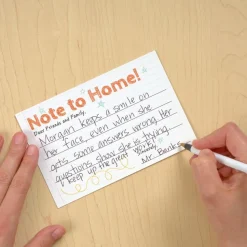 Note to Home!
Dear Friends and Family,
Morgan keeps a smile on
her face, even when she
gets some answers wrong. Her
questions show she is trying.
Keep up the great work,
Mr. Banks